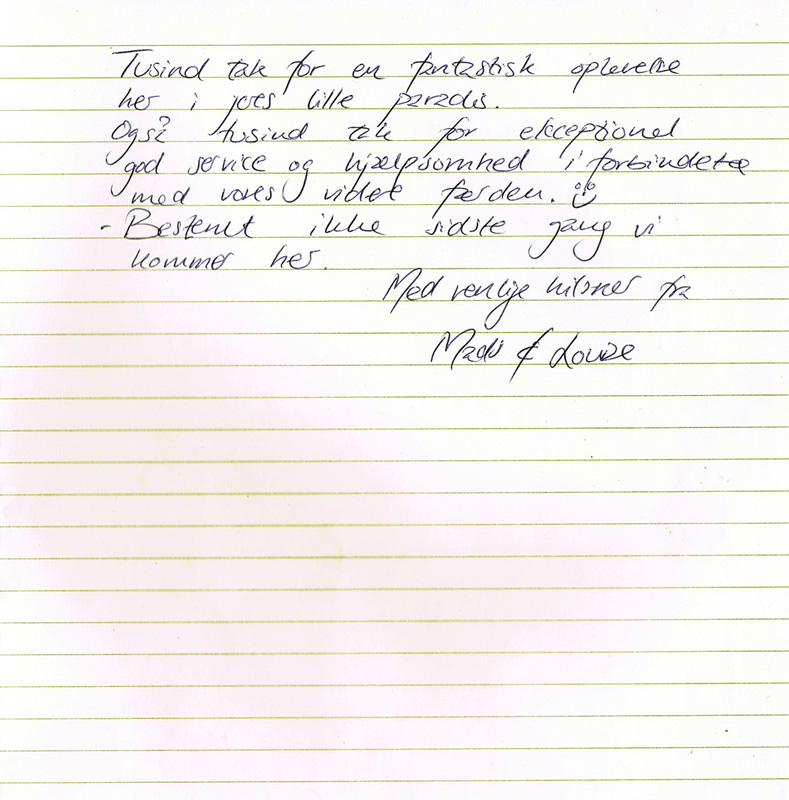 Tusind tak for en fantastisk oplevelse
her i jeres lille paradis.
Også tusind tak for ekceptionel
god service og hjælpsomhed i forbindelse
med vores videre færden. ☺
- Bestemt ikke sidste gang vi
kommer her.
Med venlige hilsner fra
Mads & Louise